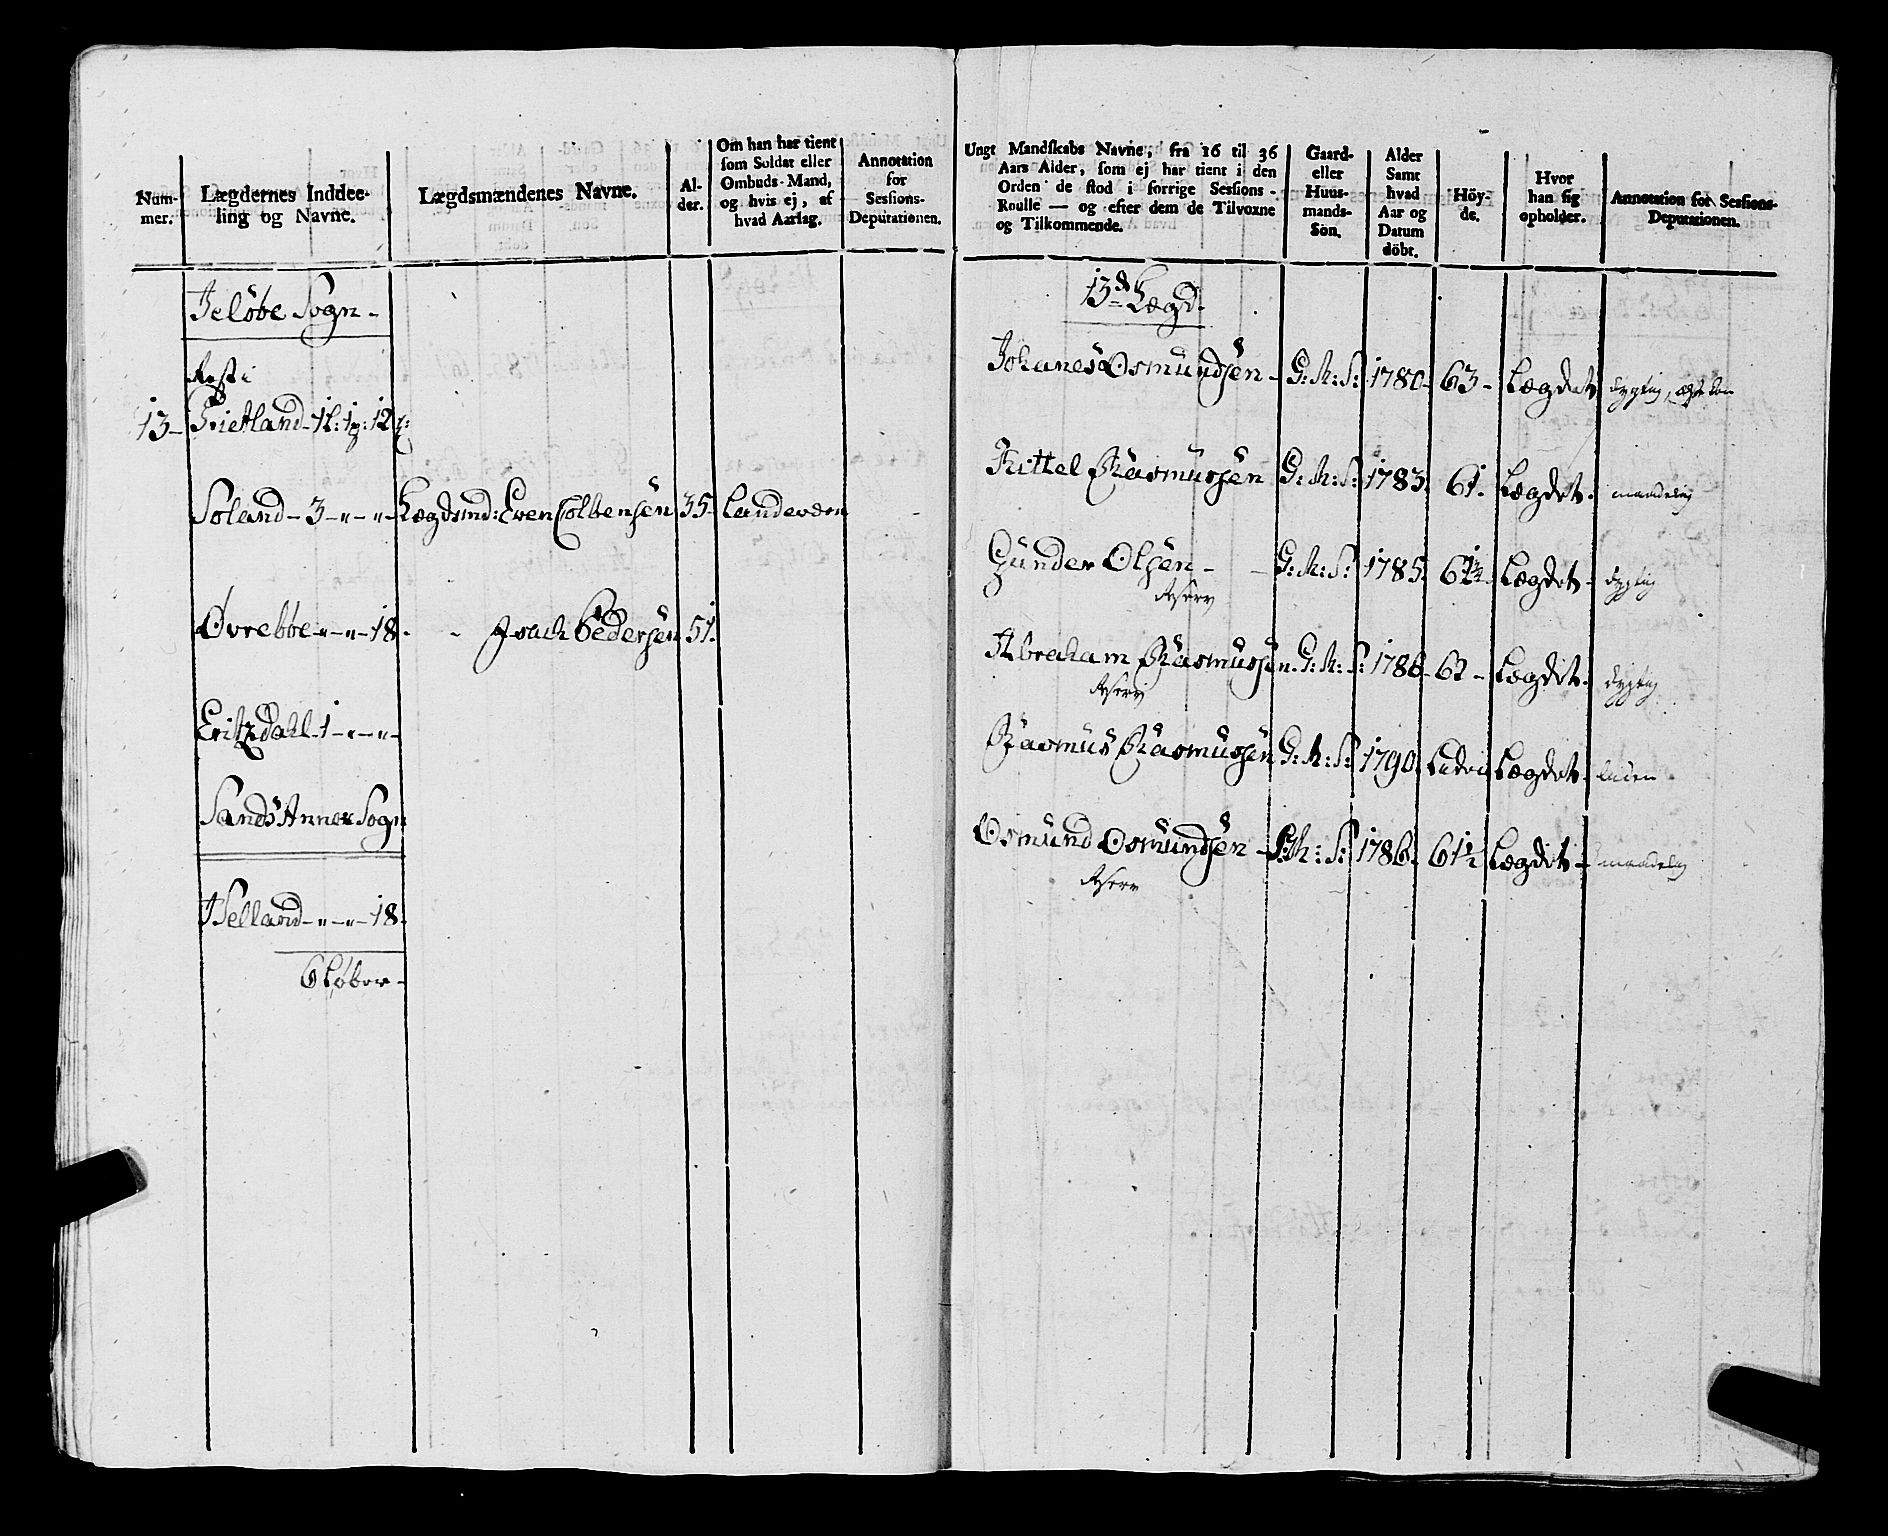 Num-
mer.
Lægdernes Inddee-
ling og Navne.
Lægdsmændenes Navne.
Al-
der.
Om han har tient
som Soldat eller
Ombuds-Mand,
og hvis ej, af
hvad Aarsag.
Annotation
for
Sessions-
Deputationen.
Jeløbe Sogn-
Rest i
13- Frietland-1l:1/2:12
Soland-3-"-"- Lægdsmd: Even Colbensen 35- Landeværn
Øvrebbe-"-"-18- - Isach Pedersen 51.
Eritzdahl-1-"-"-
Sands Annex Sogn
Helland-"-"-18-
6 Løber-
Ungt Mandskabs Navne, fra 16 til 36
Aars Alder, som ej har tient i den
Orden de stod i forrige Sessions-
Roulle — og efter dem de Tilvoxne
og Tilkommende.
Gaard-
eller
Huus-
mands-
Sön.
Alder
Samt
hvad
Aar og
Datum
döbt.
Höy-
de.
Hvor
han sig
opholder.
Annotation for Sessions-
Deputationen.
13de Lægd.
Johanes Osmundsen- G:M:S: 1780- 63- Lægdet dygtig,
Kittel Rasmussen G:M:S: 1783. 61. Lægdet. maadelig
Gunder Olsen- - G:M:S: 1785. Lægdet- dygtig
Reserv
Abraham Rasmussen. G:M:S: 1786- 62- Lægdet. dygtig
Reserv
Rasmus Rasmussen G:M:S: 1790. Liden Lægdet. liden
Osmund Osmundsen- G:M:S: 1786. 61 1/2 Lægdet- maadelig
Reserv